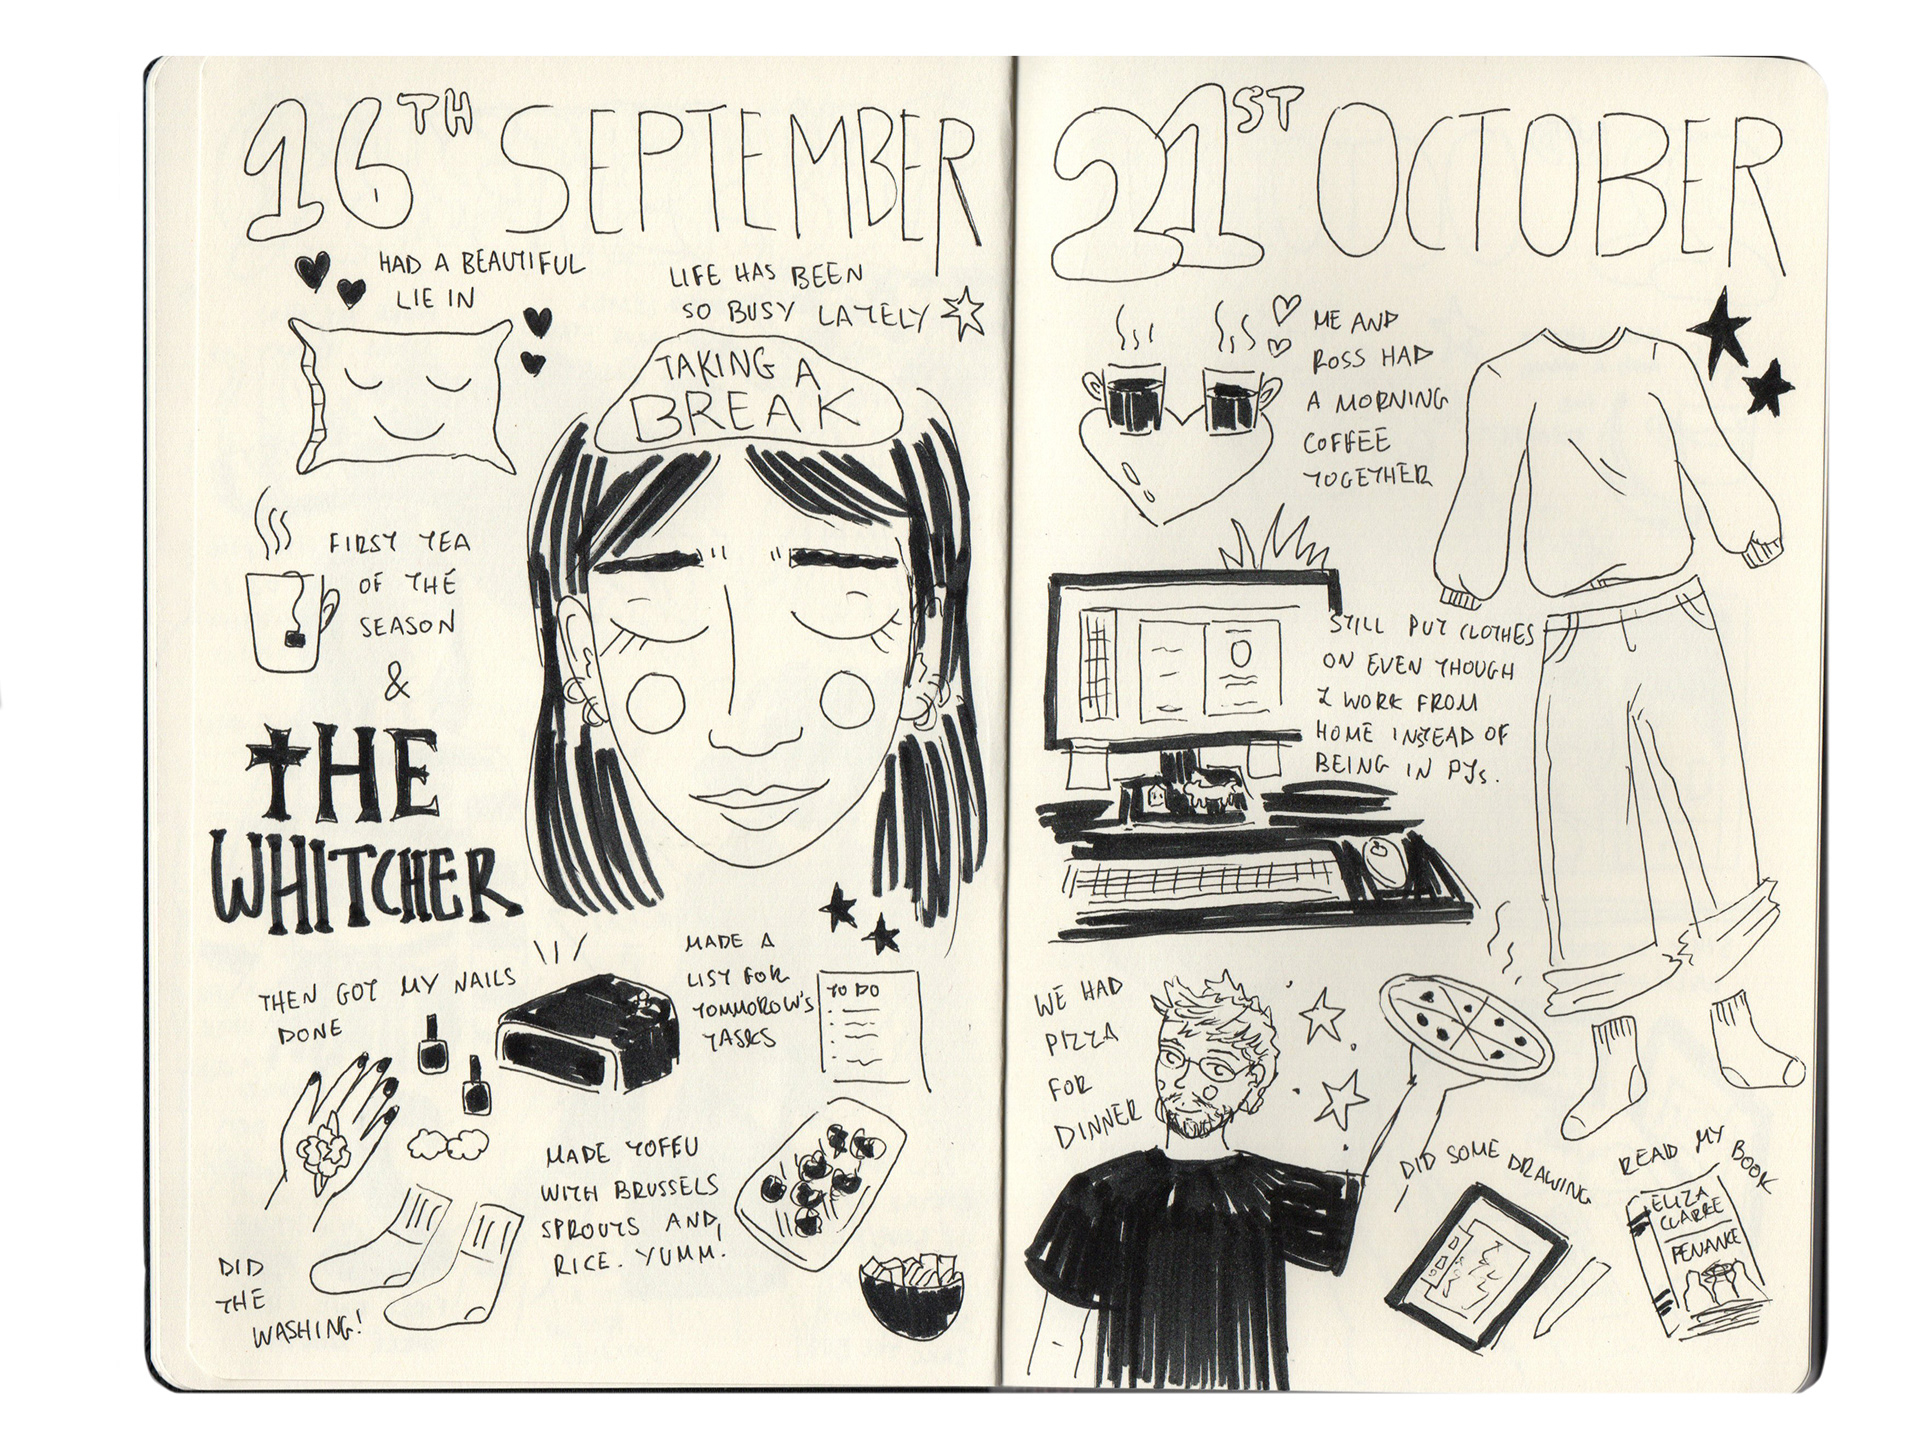 16TH SEPTEMBER
HAD A BEAUTIFUL
LIE IN
LIFE HAS BEEN
SO BUSY LATELY
TAKING A
BREAK
FIRST TEA
OF THE
SEASON
&
THE
WHITCHER
THEN GOT MY NAILS
DONE
MADE A
LIST FOR
TOMMOROW'S
TASKS
TO DO
MADE TOFFU
WITH BRUSSELS
SPROUTS AND,
RICE. YUMM.
DID
THE
WASHING!
21ST OCTOBER
ME AND
ROSS HAD
A MORNING
COFFEE
TOGETHER
STILL PUT CLOTHES
ON EVEN THOUGH
I WORK FROM
HOME INSTEAD OF
BEING IN PJs.
WE HAD
PIZZA
FOR
DINNER
DID SOME DRAWING
READ MY BOOK
ELIZA
CLARKE
PENANCE